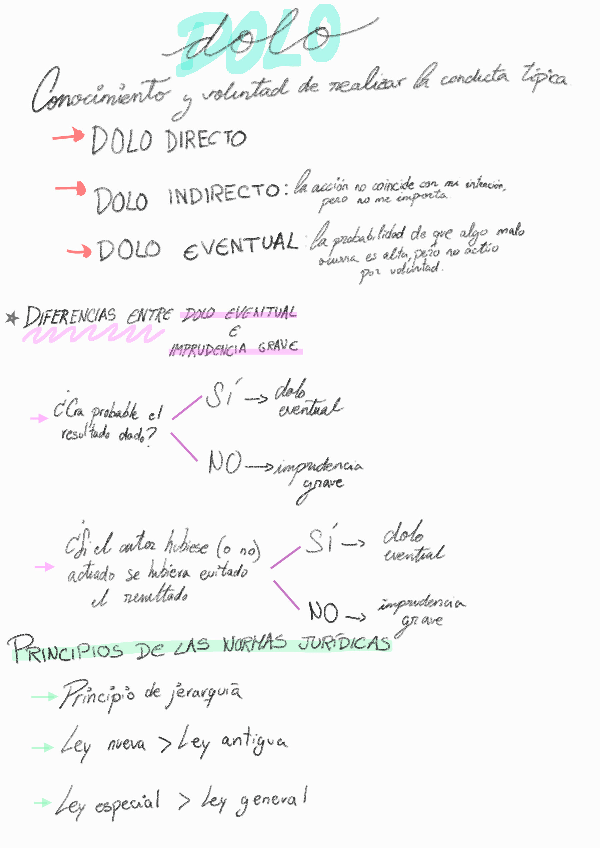 dolo
Conocimiento y voluntad de realizar la conducta típica
→ DOLO DIRECTO
→ DOLO INDIRECTO: la acción no coincide con mi intención,
pero no me importa.
→ DOLO EVENTUAL: la probabilidad de que algo malo
ocurra es alta, pero no actúo
por voluntad.
★ DIFERENCIAS ENTRE DOLO EVENTUAL
E
IMPRUDENCIA GRAVE
→ ¿Era probable el
resultado dado?
SÍ → dolo
eventual
NO → imprudencia
grave
→ ¿Si el autor hubiese (o no)
actuado se hubiera evitado
el resultado
SÍ → dolo
eventual
NO → imprudencia
grave
PRINCIPIOS DE LAS NORMAS JURÍDICAS
→ Principio de jerarquía
→ Ley nueva > Ley antigua
→ Ley especial > Ley general